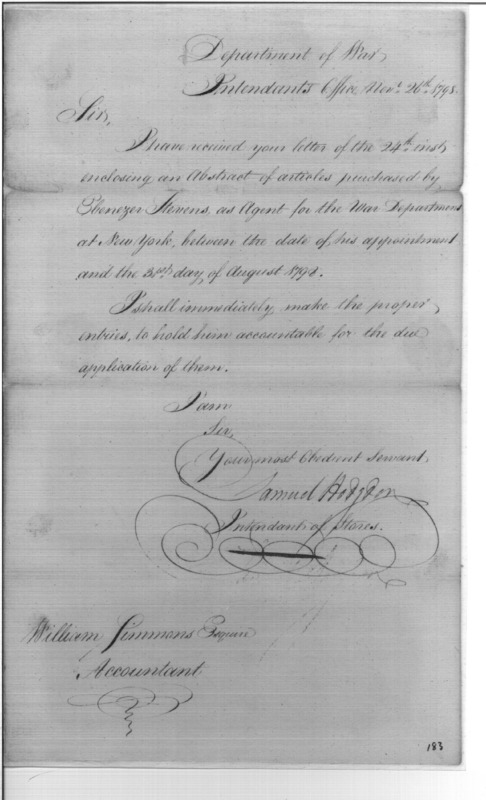 Department of War,
Intendants Office, Nov.r 26th 1798.
Sir,
I have received your letter of the 24th inst
enclosing an Abstract of articles purchased by
Ebenezer Stevens, as Agent for the War Department
at New York, between the date of his appointment
and the 31st day of August 1798.
I shall immediately make the proper
entries, to hold him accountable for the due
application of them.
I am
Sir,
Your most Obedient Servant,
Samuel Hodgdon
Intendant of Stores.
William Simmons Esquire
Accountant
183